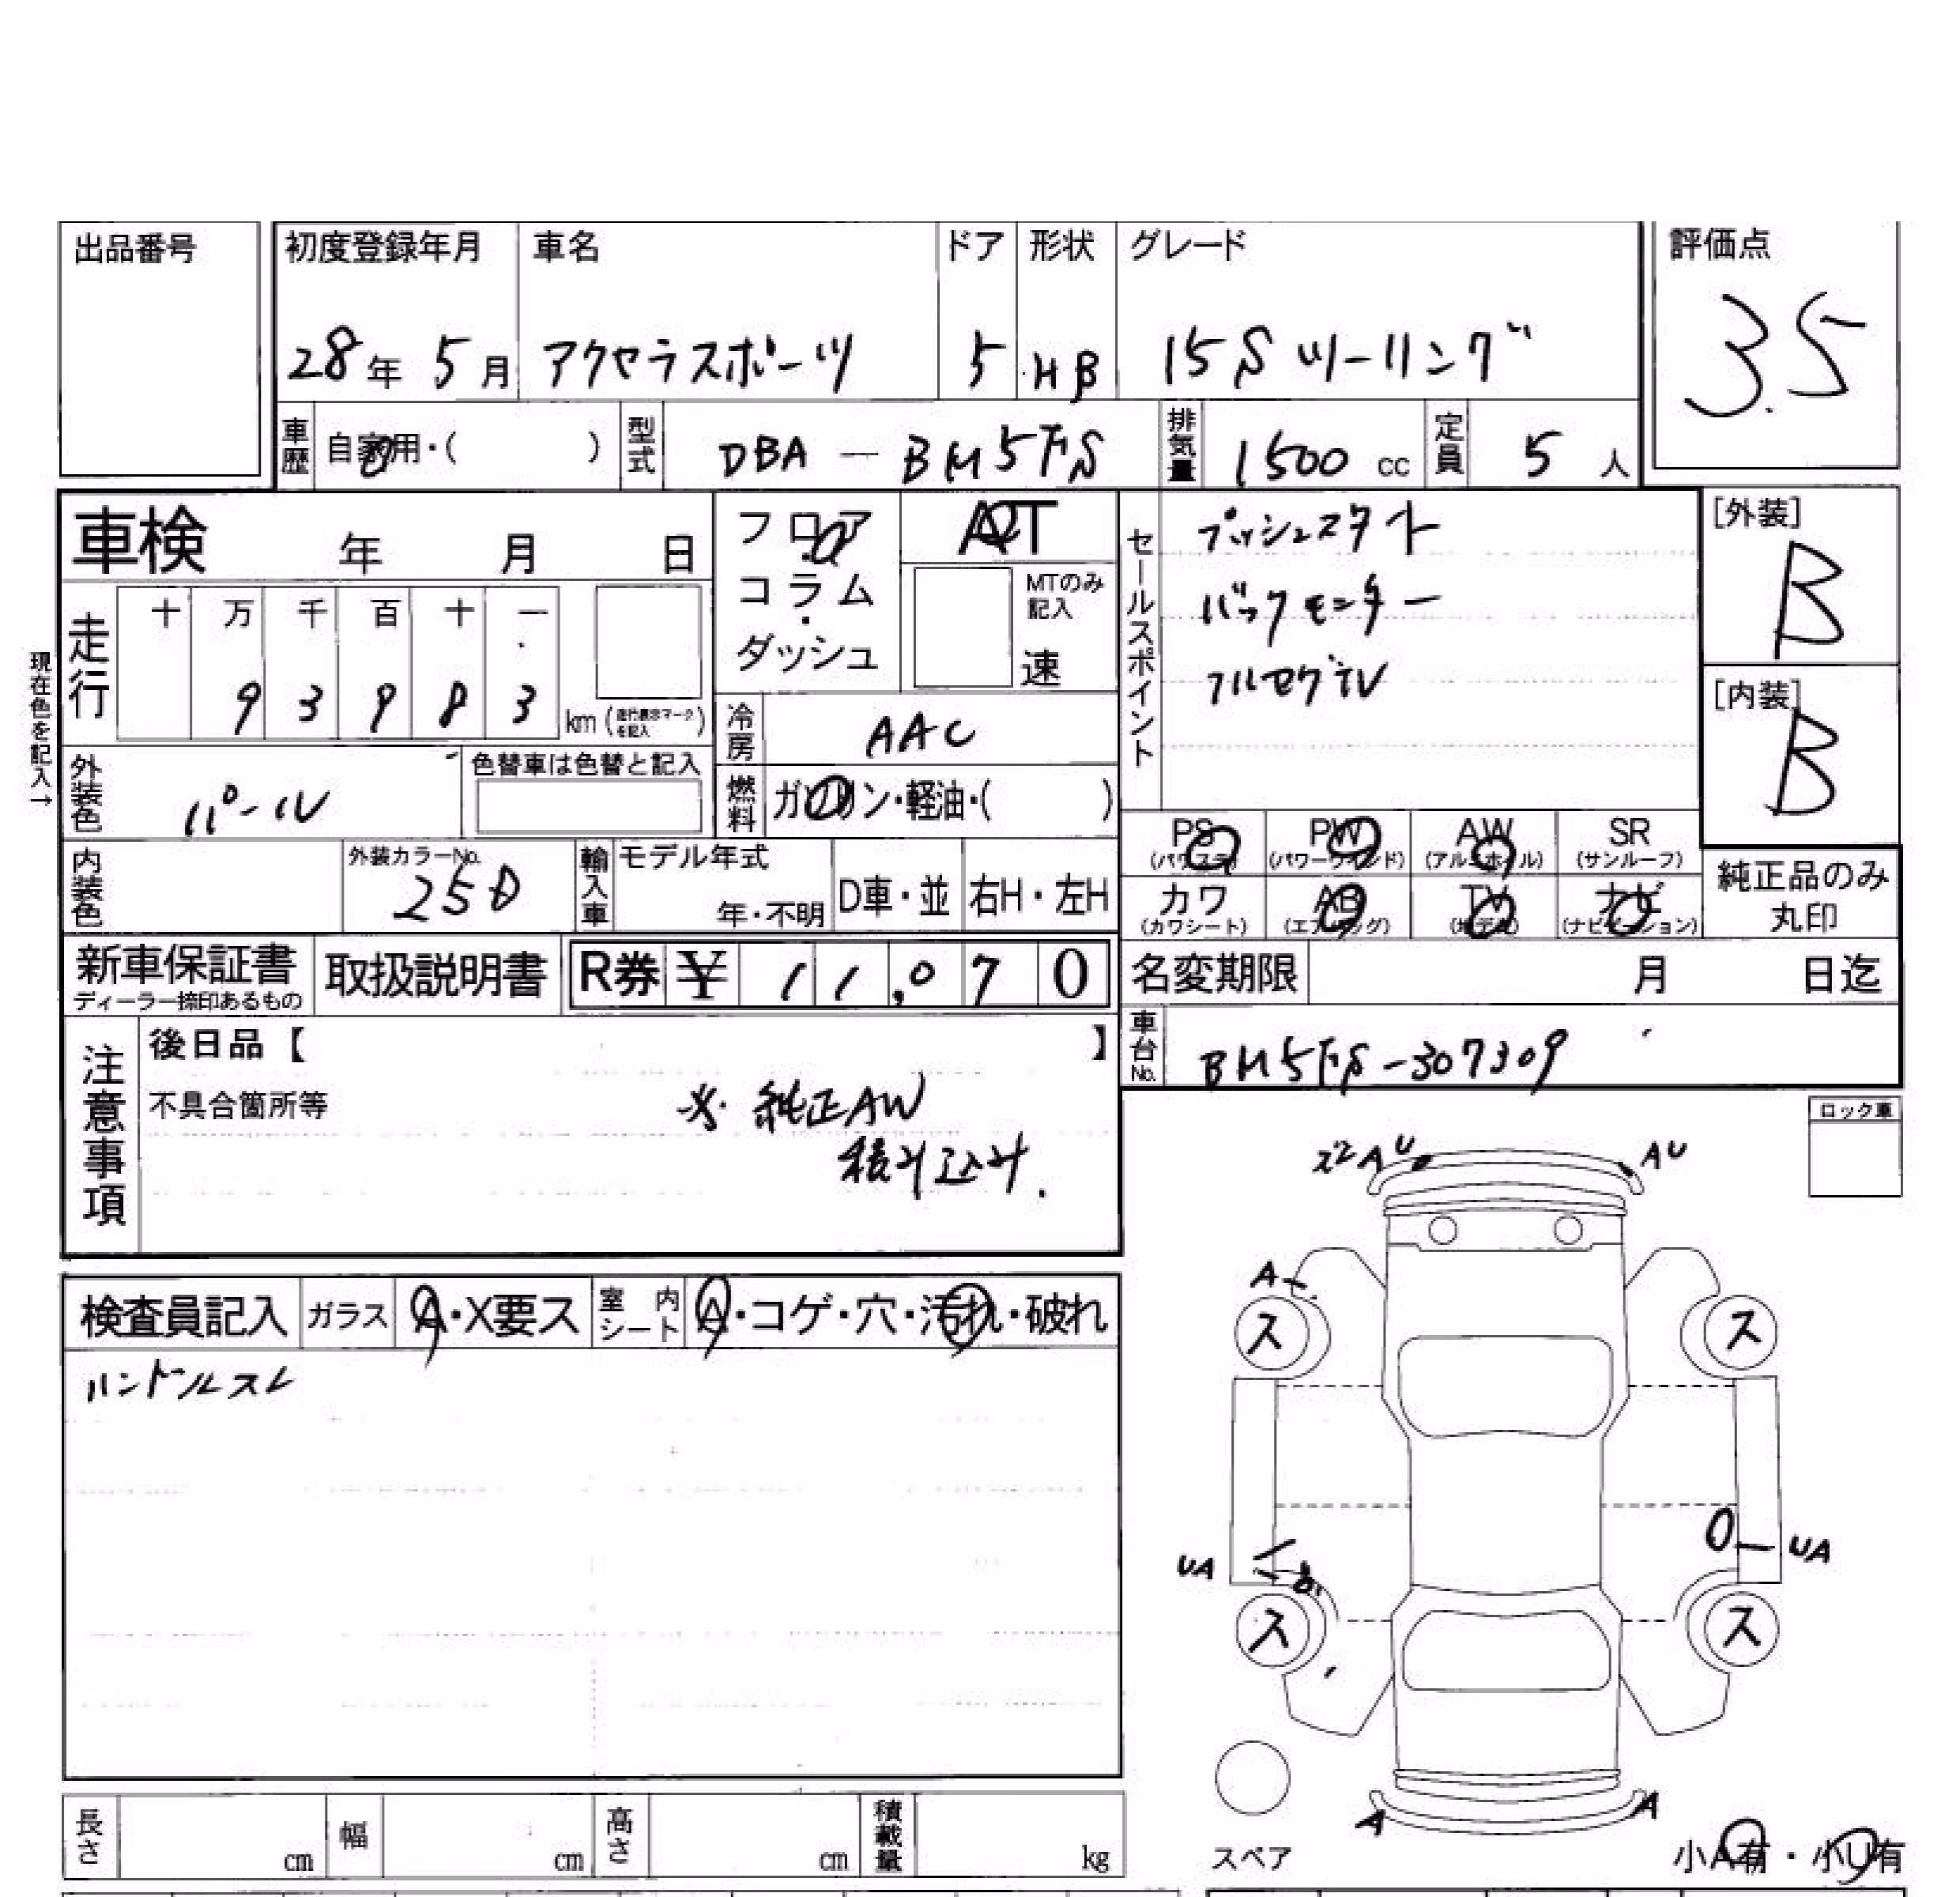 出品番号
初度登録年月 車名 ドア 形状 グレード 評価点
28年 5月 アクセラスポーツ 5 HB 15S ツーリング 3.5
車歴 自家用・( ) 型式 DBA-BM5FS 排気量 1500 cc 定員 5 人
車検 年 月 日
フロア・コラム・ダッシュ
AT
MTのみ記入
速
セールスポイント
プッシュスタート
バックモニター
フルセグTV
[外装]
B
[内装]
B
現在色を記入→
走行 十 万 千 百 十 一
9 3 9 8 3 km (走行表示マークを記入)
冷房 AAC
外装色 パール 色替車は色替と記入
燃料 ガソリン・軽油・( )
PS (パワステ) PW (パワーウインド) AW (アルミホイル) SR (サンルーフ)
カワ (カワシート) AB (エアバッグ) TV (地デジ) ナビ (ナビゲーション)
純正品のみ丸印
内装色 外装カラーNo. 25D 輸入車 モデル年式 年・不明 D車・並 右H・左H
新車保証書 ディーラー捺印あるもの 取扱説明書 R券 ¥ 11,070
名変期限 月 日迄
車台No. BM5FS-307309
注意事項 後日品【 】
不具合箇所等 ※ 純正AW
積み込み.
ロック車
検査員記入 ガラス A・X要ス 室内シート A・コゲ・穴・汚れ・破れ
ハンドルスレ
AU AU
A
ス ス
UA UA
ス ス
A A
スペア
小A有・小U有
長さ cm 幅 cm 高さ cm 積載量 kg